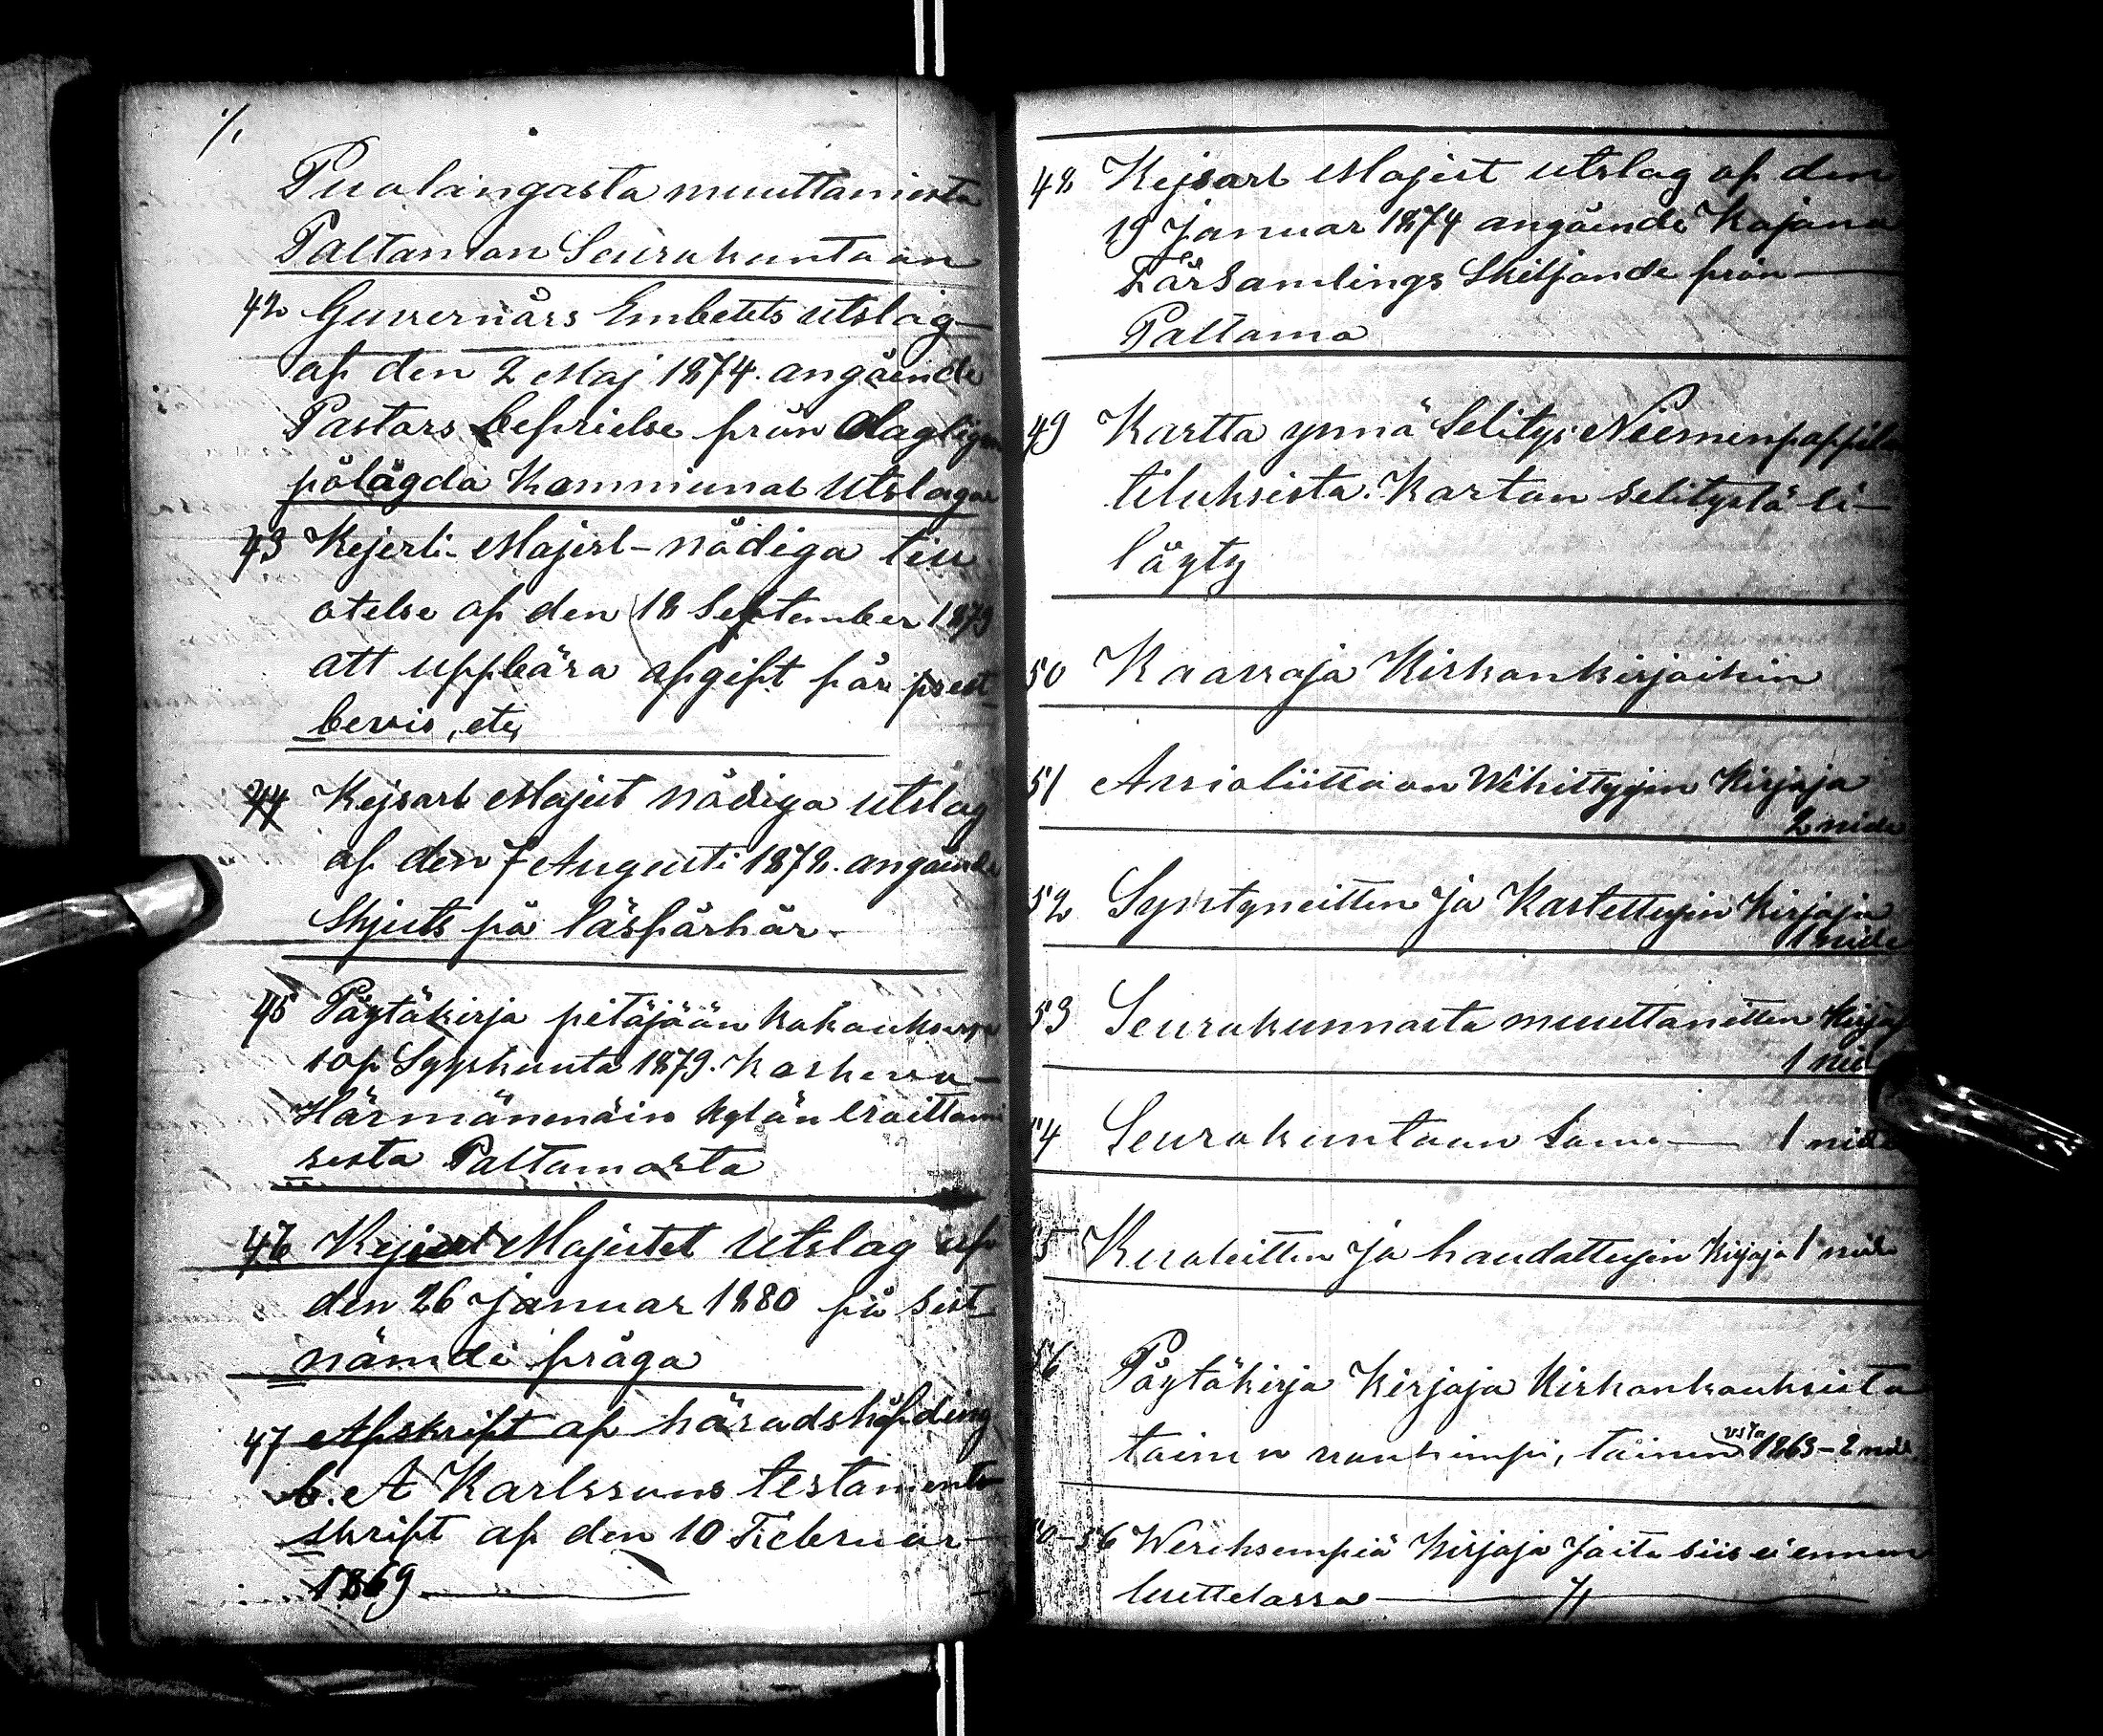 ./.
Puolangasta muuttamista
Paltamon Seurakuntaan
42 Guvernörs Embetets utslag
af den 2 Maj 1874. angående
Pastors befrielse från
pålagda Kommunal utslagor
43 Kejserl. Majest nådiga
af den 18 September 1873
att uppbära afgift för prest
bevis, etc,
44 Kejsarl Majest nådiga utslag
af den 7 Augusti 1872. angående
Skjuts på läsförhör.
45 Pöytäkirja pitäjään kokouksessa
10p Syyskuuta 1879.
Härmänmäin kylän eroittami
sesta Paltamosta
46 Majestet Utslag af
den 26 Januar 1880 på sist
nämde fråga
47 Afskrift af häradshöfding
b. A Karlssons testaments
skrift af den 10 Februar
1869
48 Kejsarl Majest utslag af den
19 Januar 1874 angående Kajana
Församlings Skiljande från
Paltamo
49 Kartta ynnä Selitys Niemenpappilan
tiluksista. Kartan selitystä ei
löyty
50 Kaavoja Kirkonkirjoihin
51 Avioliittoon Wihittyjen Kirjoja
2 nide
52 Syntyneitten ja Kastettujen Kirjoja
1 nide
53 Seurakunnasta muuttanitten Kirjoj
1 nid
54 Seurakuntaan Sam. 1 nide
55 Kuoleitten ja haudattujen Kirjoja 1 nide
56 Pöytäkirja Kirjoja Kirkonkouksista
toinen vanhempi, toinen vsta 1863 - 2 nid.
50-56 Wereksempiä Kirjoja joita siis ei ennen
luettelossa